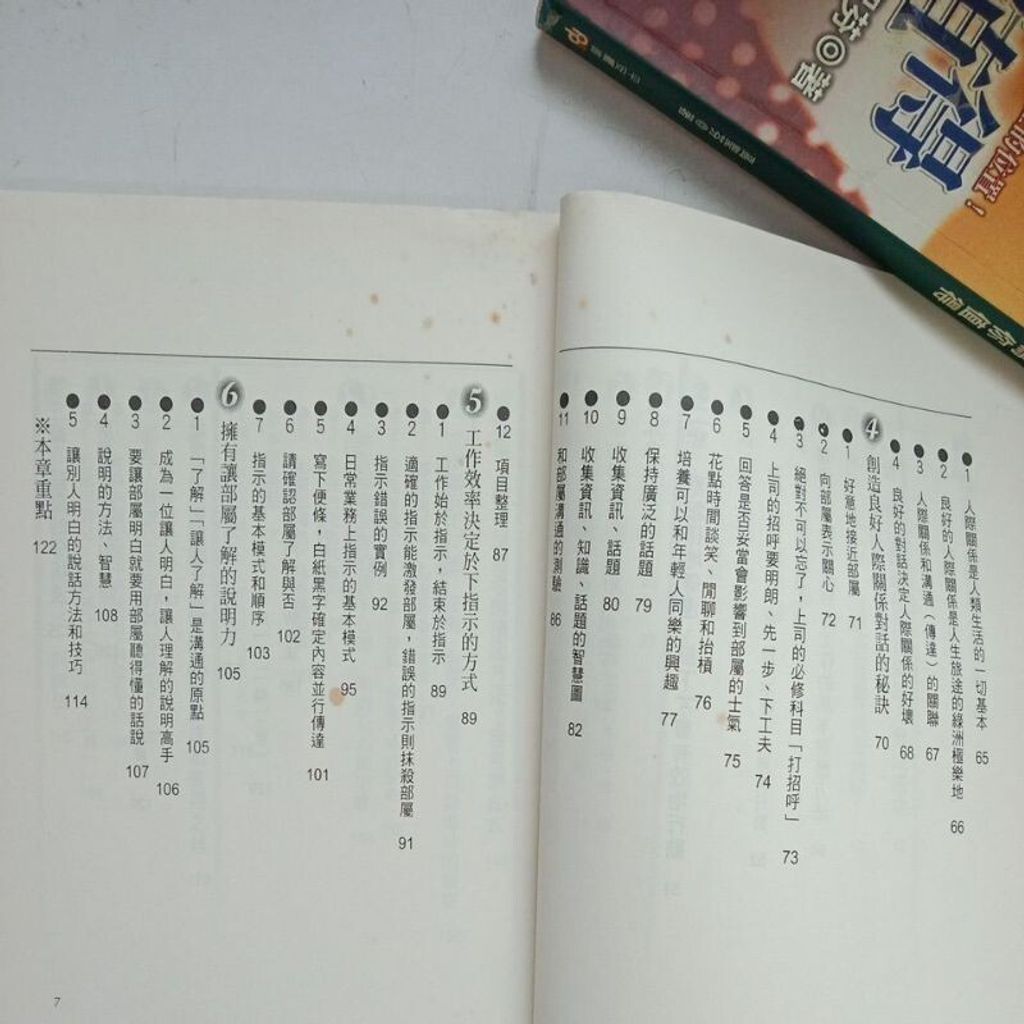 1 人際關係是人類生活的一切基本 65
2 良好的人際關係是人生旅途的綠洲極樂地 66
3 人際關係和溝通(傳達)的關聯 67
4 良好的對話決定人際關係的好壞 68
4 創造良好人際關係對話的秘訣 70
1 好意地接近部屬 71
2 向部屬表示關心 72
3 絕對不可以忘了,上司的必修科目「打招呼」 73
4 上司的招呼要明朗、先一步、下工夫 74
5 回答是否妥當會影響到部屬的士氣 75
6 花點時間談笑、閒聊和抬槓 76
7 培養可以和年輕人同樂的興趣 77
8 保持廣泛的話題 79
9 收集資訊、話題 80
10 收集資訊、知識、話題的智慧圖 82
11 和部屬溝通的測驗 86
12 項目整理 87
5 工作效率決定於下指示的方式 89
1 工作始於指示,結束於指示 89
2 適確的指示能激發部屬,錯誤的指示則抹殺部屬 91
3 指示錯誤的實例 92
4 日常業務上指示的基本模式 95
5 寫下便條,白紙黑字確定內容並行傳達 101
6 請確認部屬了解與否 102
7 指示的基本模式和順序 103
6 擁有讓部屬了解的說明力 105
1 「了解」「讓人了解」是溝通的原點 105
2 成為一位讓人明白,讓人理解的說明高手 106
3 要讓部屬明白就要用部屬聽得懂的話說 107
4 說明的方法、智慧 108
5 讓別人明白的說話方法和技巧 114
※本章重點 122
7
值得
的位置!
芬◎著
你值得